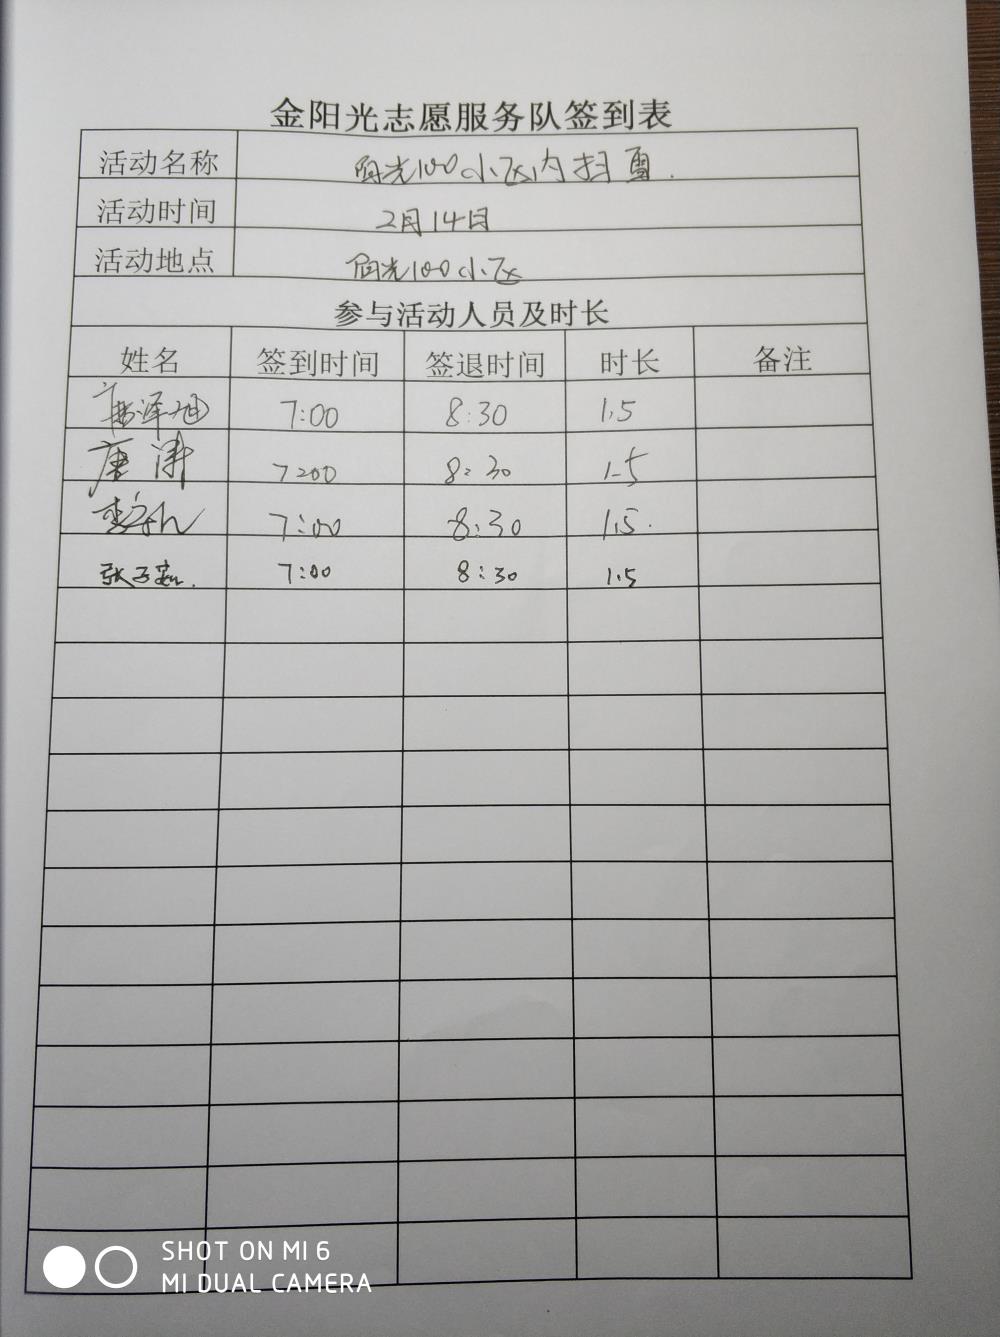 金阳光志愿服务队签到表
活动名称 阳光100小区内扫雪.
活动时间 2月14日
活动地点 阳光100小区
参与活动人员及时长
姓名 签到时间 签退时间 时长 备注
唐泽旭 7:00 8:30 1.5
唐 7:00 8:30 1.5
7:00 8:30 1.5.
张子 7:00 8:30 1.5
SHOT ON MI 6
MI DUAL CAMERA